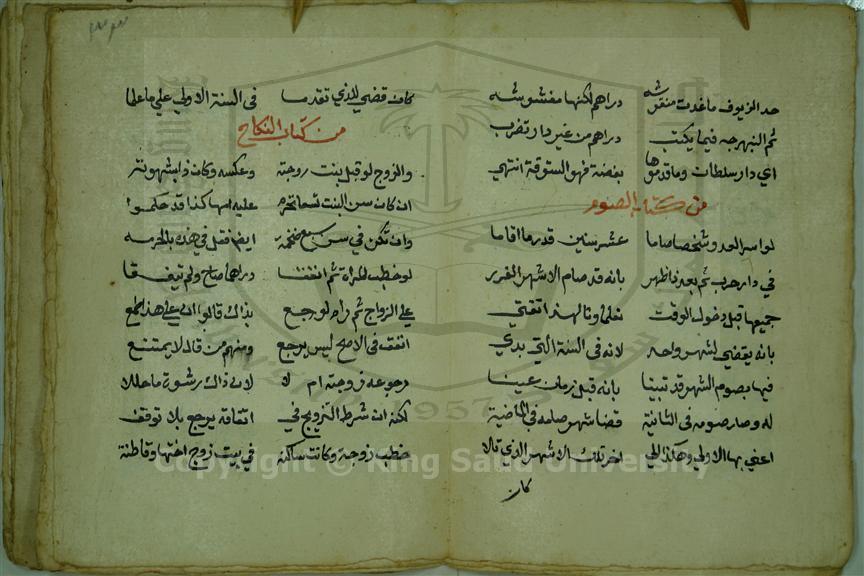 حد الزيوف ما غدت منقرشه دراهم لكنها مغشوشه
ثم النبهرجه فيما يكتب دراهم من غير دار تضرب
اي دار سلطان وما قدموها بفضة فهو الستوقة انتهي
من كتاب الصوم
لو اسر العدو شخصا صاما عشر سنين قدر ما اقاما
في دار حرب ثم بعد ذا ظهر بانه قد صام الاشهر الغرر
جميعها قبل دخول الوقت نعلما وقالهذا تفتي
بانه يقضي لشهر واحد لانه في السنة التي بدي
فيها بصوم الشهر قد تبينا بانه قبل زمان عينا
له وصار صومه في الثانية قضا شهر صامه في الماضية
اعني بها الاولي وهكذا الي اخر تلك الاشهر الذي تلا
كان
كان قضي للذي تقدما في السنة الاولي علي ما علما
من كتاب النكاح
والزوج لو قبل بنت زوجته وعكسه وكان ذا بشهوته
ان كان سن البنت تسعا تحرم عليه امها كذا قد حكموا
وان تكن في سن سبع ضخمة ايضا فقل في هذه بالحرمه
لو خطب المراة ثم انفقا دراهما صاح ولم تيفقا
علي الزواج ثم رام لو رجع بذاك قالوا الي علي هذا الطمع
انفق في الاصح ليس يرجع ومنهم من قال لا يمتنع
رجوعه زوجته ام لا لان ذاك رشوة ما حللا
لكنه ان شرط التزويج في انفاقه يرجع بلا توقف
خطب زوجة وكانت ساكنه في بيت زوج اختها وقاطنة
Copyright © King Saud University
1957